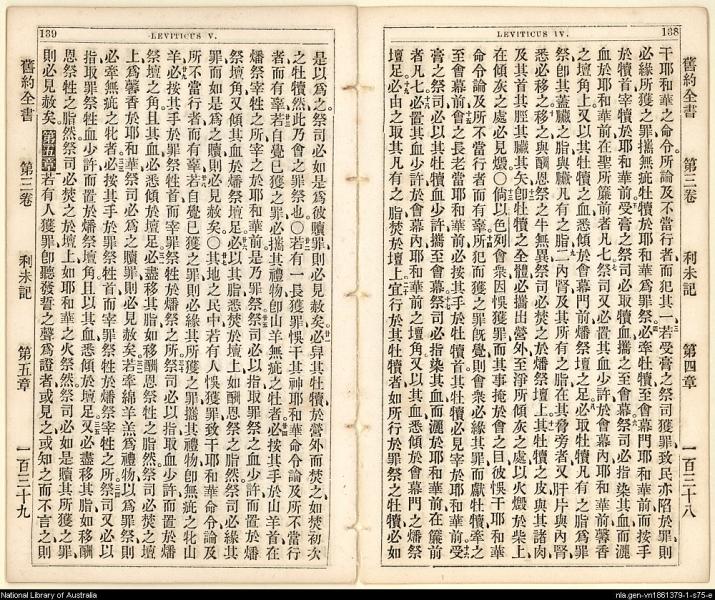 138
LEVITICUS IV.
舊約全書
第三卷
利未記
第四章
一百三十八
干耶和華之命令所論及不當行者而犯其一若受膏之祭司獲罪致民亦陷於罪則
必緣所獲之罪攜無疵牡犢於耶和華爲罪祭必牽牡犢至會幕門耶和華前而按手
於犢首宰犢於耶和華前受膏之祭司必取犢血攜之至會幕祭司必指染其血而灑
血於耶和華前在聖所簾前者凡七祭司又必置其血少許於會幕內耶和華前馨香
之壇角上又以其牡犢之血悉傾於會幕門前燔祭壇之足必取牡犢凡有之脂爲罪
祭卽其蓋臟之脂與臟凡有之脂二內腎及其所有之脂在其脅旁者又肝片與內腎
悉必移之移之與酬恩祭之牛無異祭司必焚之於燔祭壇上其牡犢之皮與其諸肉
及其首其脛其臟其矢卽牡犢之全體必攜出營外至淨所傾灰之處以火燬於柴上
在傾灰之處必見燬〇倘以色列會衆因悞獲罪而其事掩於會之目彼悞干耶和華
命令論及所不當行者而有辜所犯而獲之罪旣覺則會衆必緣其罪而獻牡犢牽之
至會幕前會之長老當耶和華前必按其手於牡犢首其牡犢必見宰於耶和華前受
膏之祭司必以其牡犢血少許攜至會幕祭司必指染其血而灑於耶和華前在簾前
者凡七必置其血少許於會幕內耶和華前之壇角上又以其血悉傾於會幕門之燔祭
壇足必由之取其凡有之脂焚於壇上宜行於其牡犢者如所行於罪祭之牡犢必如
139
LEVITICUS V.
是以爲之祭司必如是爲彼贖罪則必見赦矣必舁其牡犢於營外而焚之如焚初次
之牡犢然此乃會之罪祭也〇若有一長獲罪悞干其神耶和華命令論及所不當行
者而有辜若自覺已獲之罪必攜其禮物卽山羊無疵之牡者必按其手於山羊首在
燔祭宰牲之所宰之於耶和華前是乃罪祭祭司必以指取罪祭之血少許而置於燔
祭壇角又傾其血於燔祭壇足必以其脂悉焚於壇上如酬恩祭之脂然祭司必緣其
罪而如是爲之贖則必見赦矣〇其地之民中若有人悞獲罪致干耶和華命令論及
所不當行者而有辜若自覺已獲之罪則必緣其所獲之罪攜其禮物卽無疵之牝山
羊必按其手於罪祭牲首而宰罪祭牲於燔祭之所祭司必以指取血少許而置於燔
祭壇之角且其血必悉傾於壇足必盡移其脂如移酬恩祭牲之脂然祭司必焚之壇
上爲馨香於耶和華祭司必爲之贖罪則必見赦矣若牽綿羊羔爲禮物以爲罪祭則
必牽無疵之牝者必按其手於罪祭牲首而宰罪祭牲於燔祭宰牲之所祭司又必以
指取罪祭牲血少許而置於燔祭壇角且以其血悉傾於壇足又必盡移其脂如移酬
恩祭牲之脂然祭司必焚之於壇上如耶和華之火祭然祭司必如是贖其所獲之罪
則必見赦矣第五章若有人獲罪卽聽發誓之聲爲證者或見之或知之而不言之則
舊約全書
第三卷
利未記
第五章
一百三十九
National Library of Australia
nla.gen-vn1861379-1-s75-e